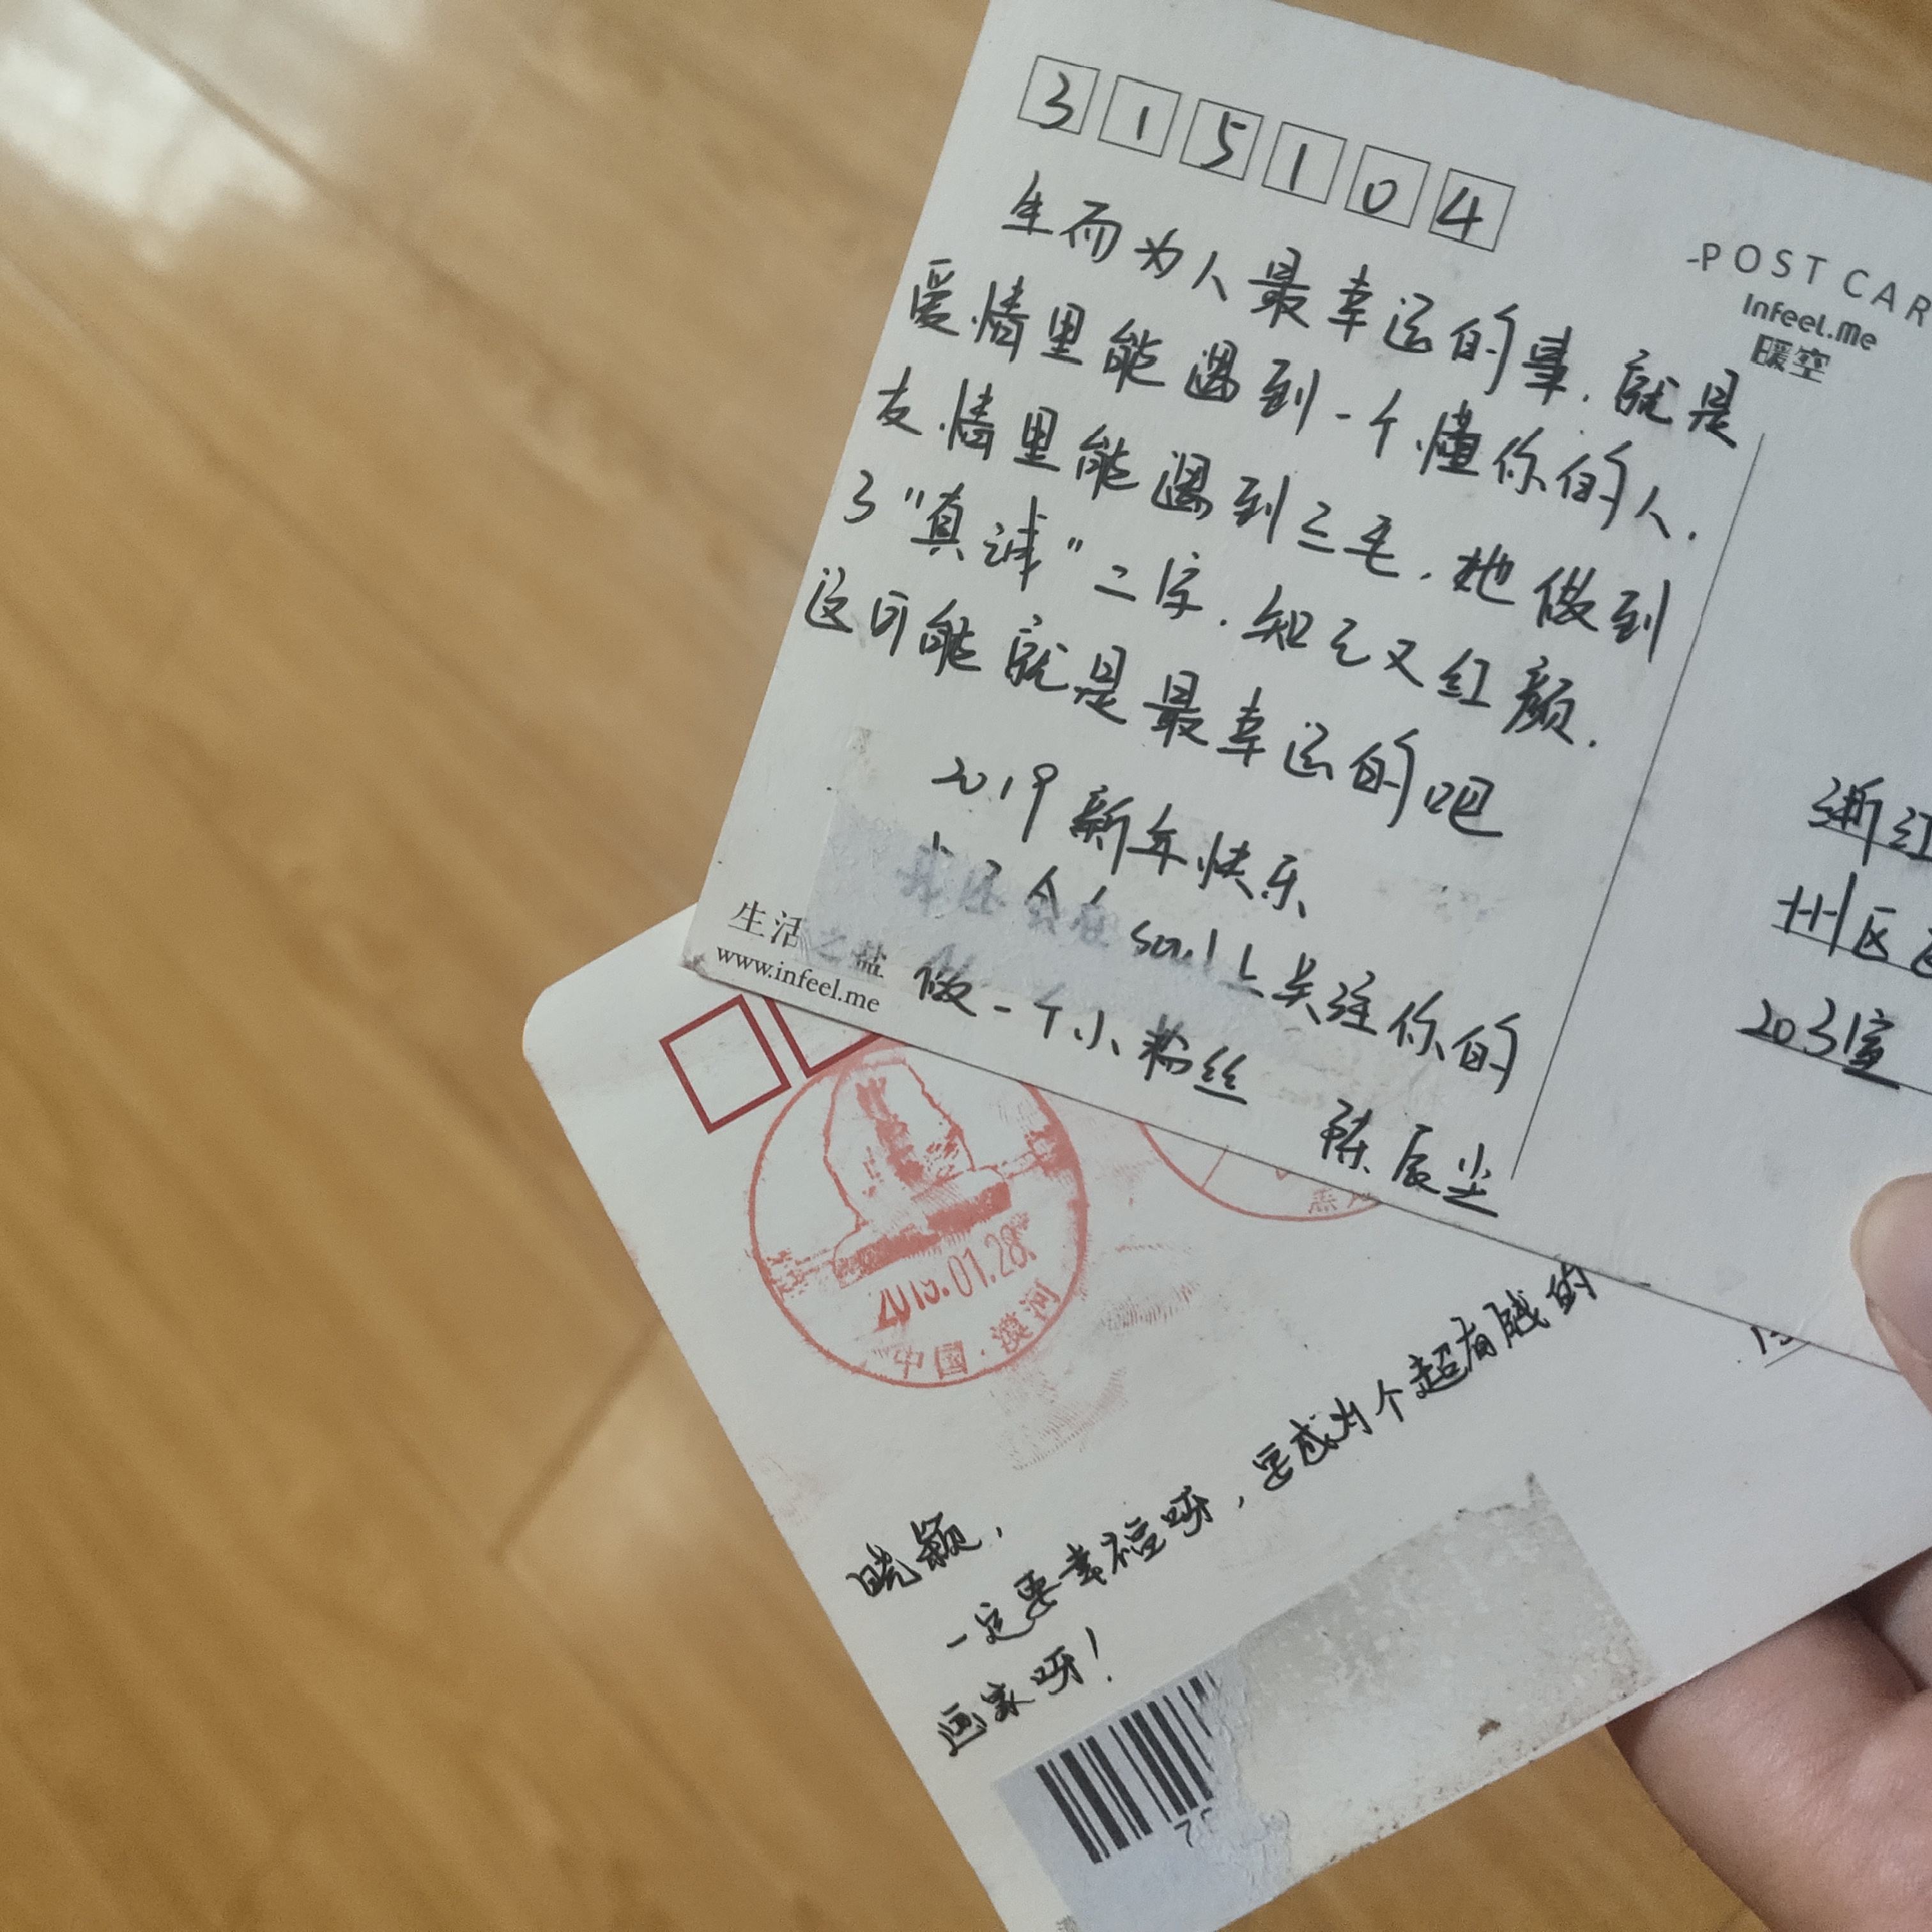 315104
-POST CAR
Infeel.me
暖空
生而为人最幸运的事.就是
爱情里能遇到一个懂你的人.
友情里能遇到三毛.她做到
了"真诚"二字.知己又红颜.
这可能就是最幸运的吧
2019新年快乐
来还会在soul上关注你的
做一个小粉丝
陈辰尘
生活之盐
www.infeel.me
浙江
州区
203室
2019.01.28.
中国·漠河
晓颖,
一定要幸福呀,要成为个超有钱的
画家呀!